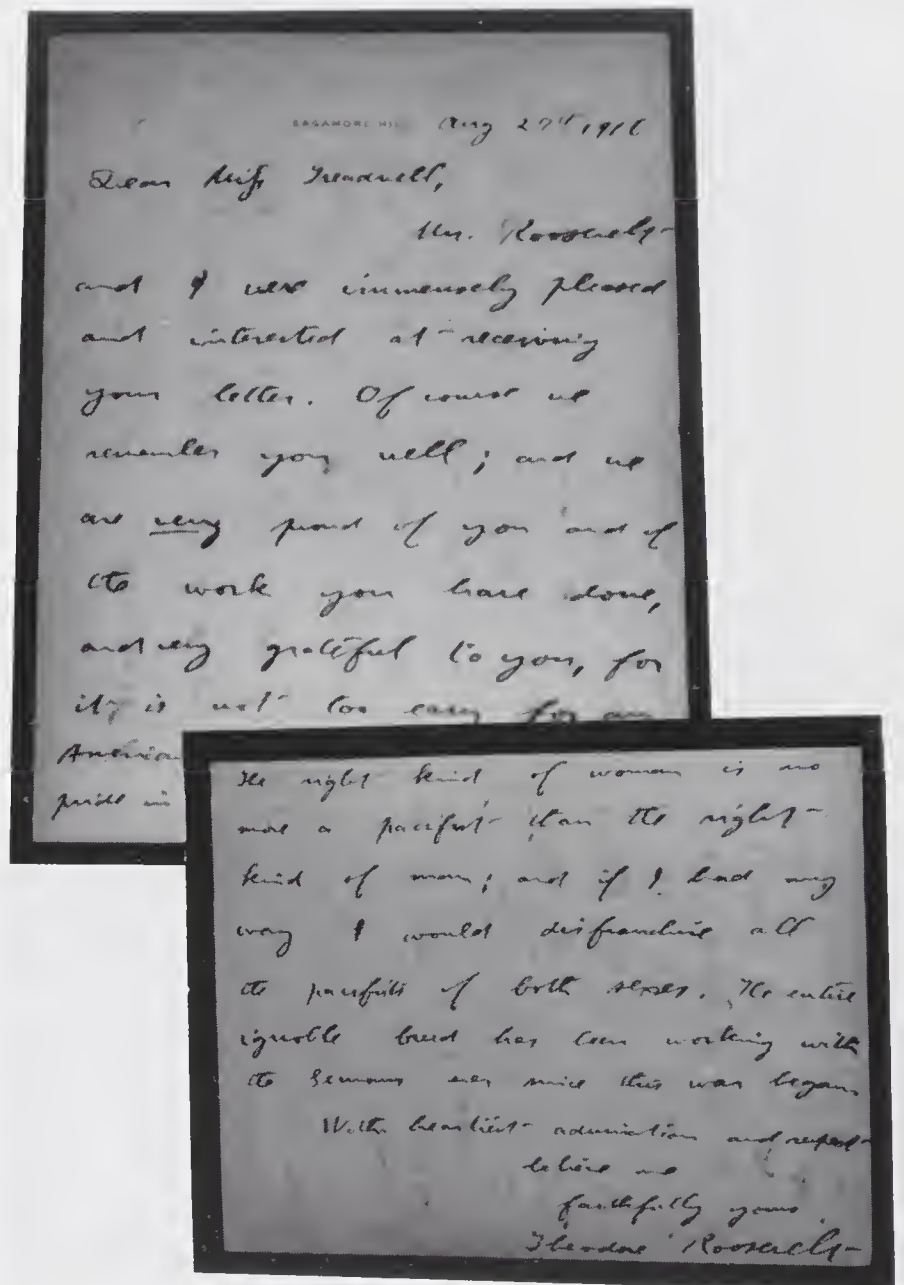 SAGAMORE HILL Aug 27th 1916
Dear Miss Treadwell,
Mrs. Roosevelt
and I were immensely pleased
and interested at receiving
your letter. Of course we
remember you well; and we
are very proud of you and of
the work you have done,
and very grateful to you, for
it is not too easy for an
American
pride in
The right kind of woman is no
more a pacifist than the right
kind of man; and if I had my
way I would disfranchise all
the pacifists of both sexes. The entire
ignoble breed has been working with
the Germans ever since this war began.
With heartiest admiration and respect
believe me
faithfully yours
Theodore Roosevelt